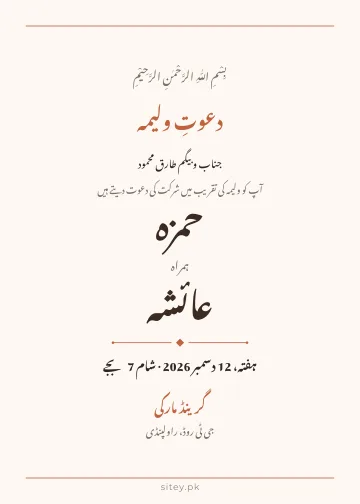 بِسْمِ اللهِ الرَّحْمٰنِ الرَّحِيْمِ
دعوتِ ولیمہ
جناب و بیگم طارق محمود
آپ کو ولیمہ کی تقریب میں شرکت کی دعوت دیتے ہیں
حمزہ
ہمراہ
عائشہ
ہفتہ، 12 دسمبر 2026 · شام 7 بجے
گرینڈ مارکی
جی ٹی روڈ، راولپنڈی
sitey.pk